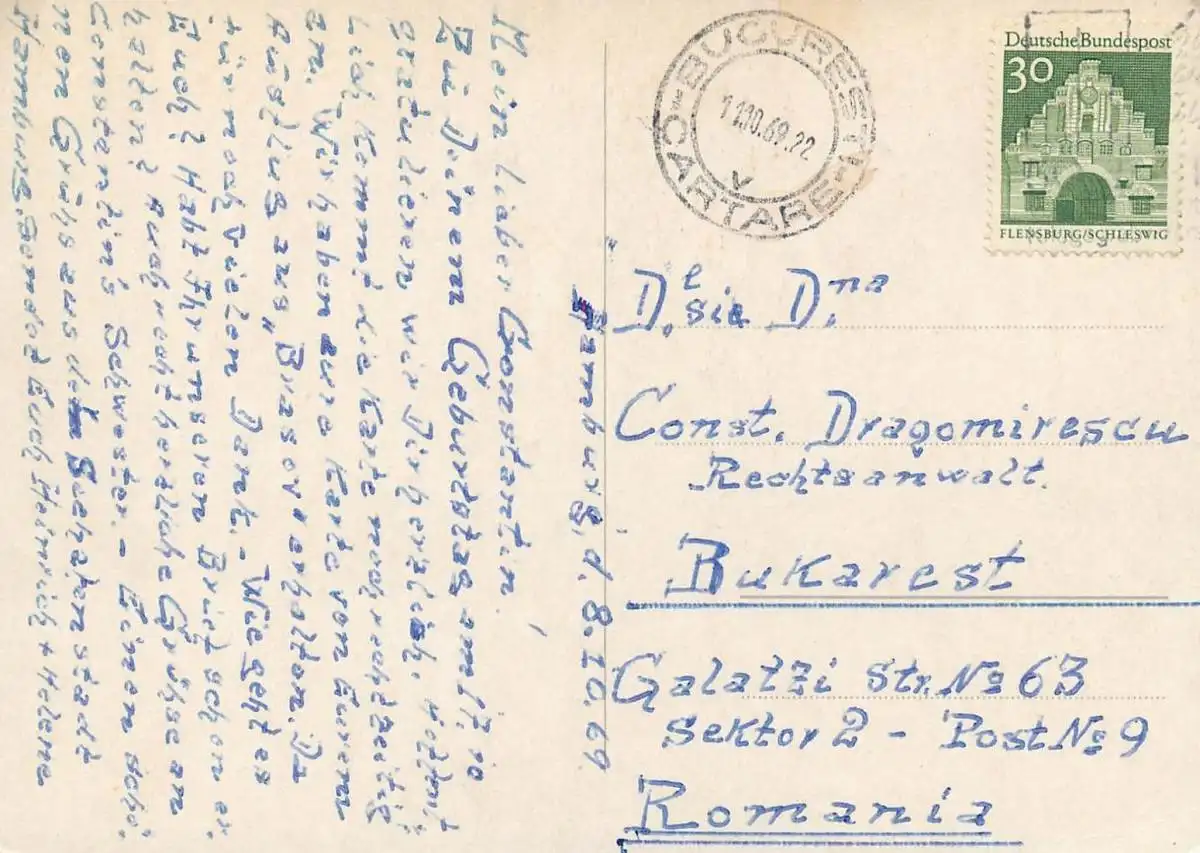 Hamburg, d. 8.10.69
Mein lieber Constantin!
Zu Deinem Geburtstag am 17.10
gratulieren wir Dir herzlich. Hoffent
lich kommt die Karte noch rechtzeitig
an. Wir haben eure Karte von Eurem
Ausflug aus „Brasov" erhalten. Da
für noch vielen Dank. – Wie geht es
Euch? Habt Ihr unseren Brief schon er
halten? Auch recht herzliche Grüße an
Constantin's Schwester. – Einen schö
nen Gruß aus der
Hamburg sendet Euch Heinrich + Helene
BUCUREȘTI
CARTARE
V
Deutsche Bundespost
30
FLENSBURG/SCHLESWIG
D.l sie D.na
Const. Dragomirescu
Rechtsanwalt.
Bukarest
Galatzi Str. No 63
Sektor 2 - Post No 9
Romania